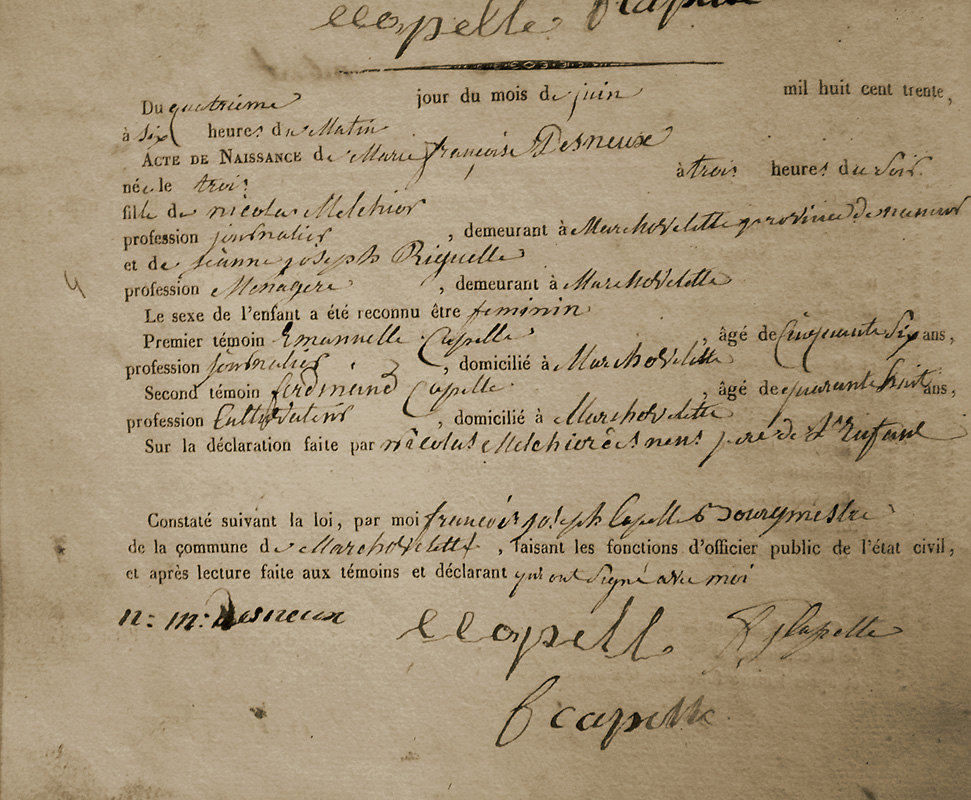 ecapelle fcapelle
Du quatrième jour du mois de juin mil huit cent trente,
à six heures du Matin
ACTE DE NAISSANCE de Marie françoise Desneux
née le trois à trois heures du Soir
fille de nicolas Melchior
profession journalier, demeurant à Marchovelette province de namur
et de jeanne joseph Riguelle
profession Menagere, demeurant à Marchovelette
Le sexe de l'enfant a été reconnu être feminin
Premier témoin Emannuelle Capelle, âgé de Cinquante Six ans,
profession journalier, domicilié à Marchovelette
Second témoin ferdinand Capelle, âgé de quarante huit ans,
profession Cultivateur, domicilié à Marchovelette
Sur la déclaration faite par nicolas Melchior desneux pere de L'Enfant
Constaté suivant la loi, par moi françois joseph Capelle Bourgmestre
de la commune de Marchovelette, faisant les fonctions d'officier public de l'état civil,
et après lecture faite aux témoins et déclarant qui ont signé avec moi
n: m: Desneux ecapelle fjCapelle
fcapelle